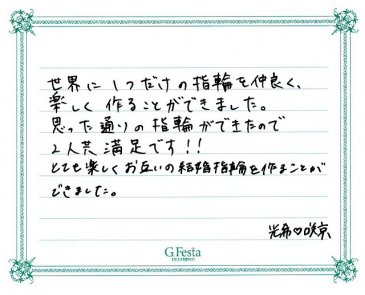 世界に1つだけの指輪を仲良く、
楽しく作ることができました。
思った通りの指輪ができたので
2人共満足です!!
とても楽しくお互いの結婚指輪を作ることが
できました。
光希♡咲京
G.Festa
DIAMOND